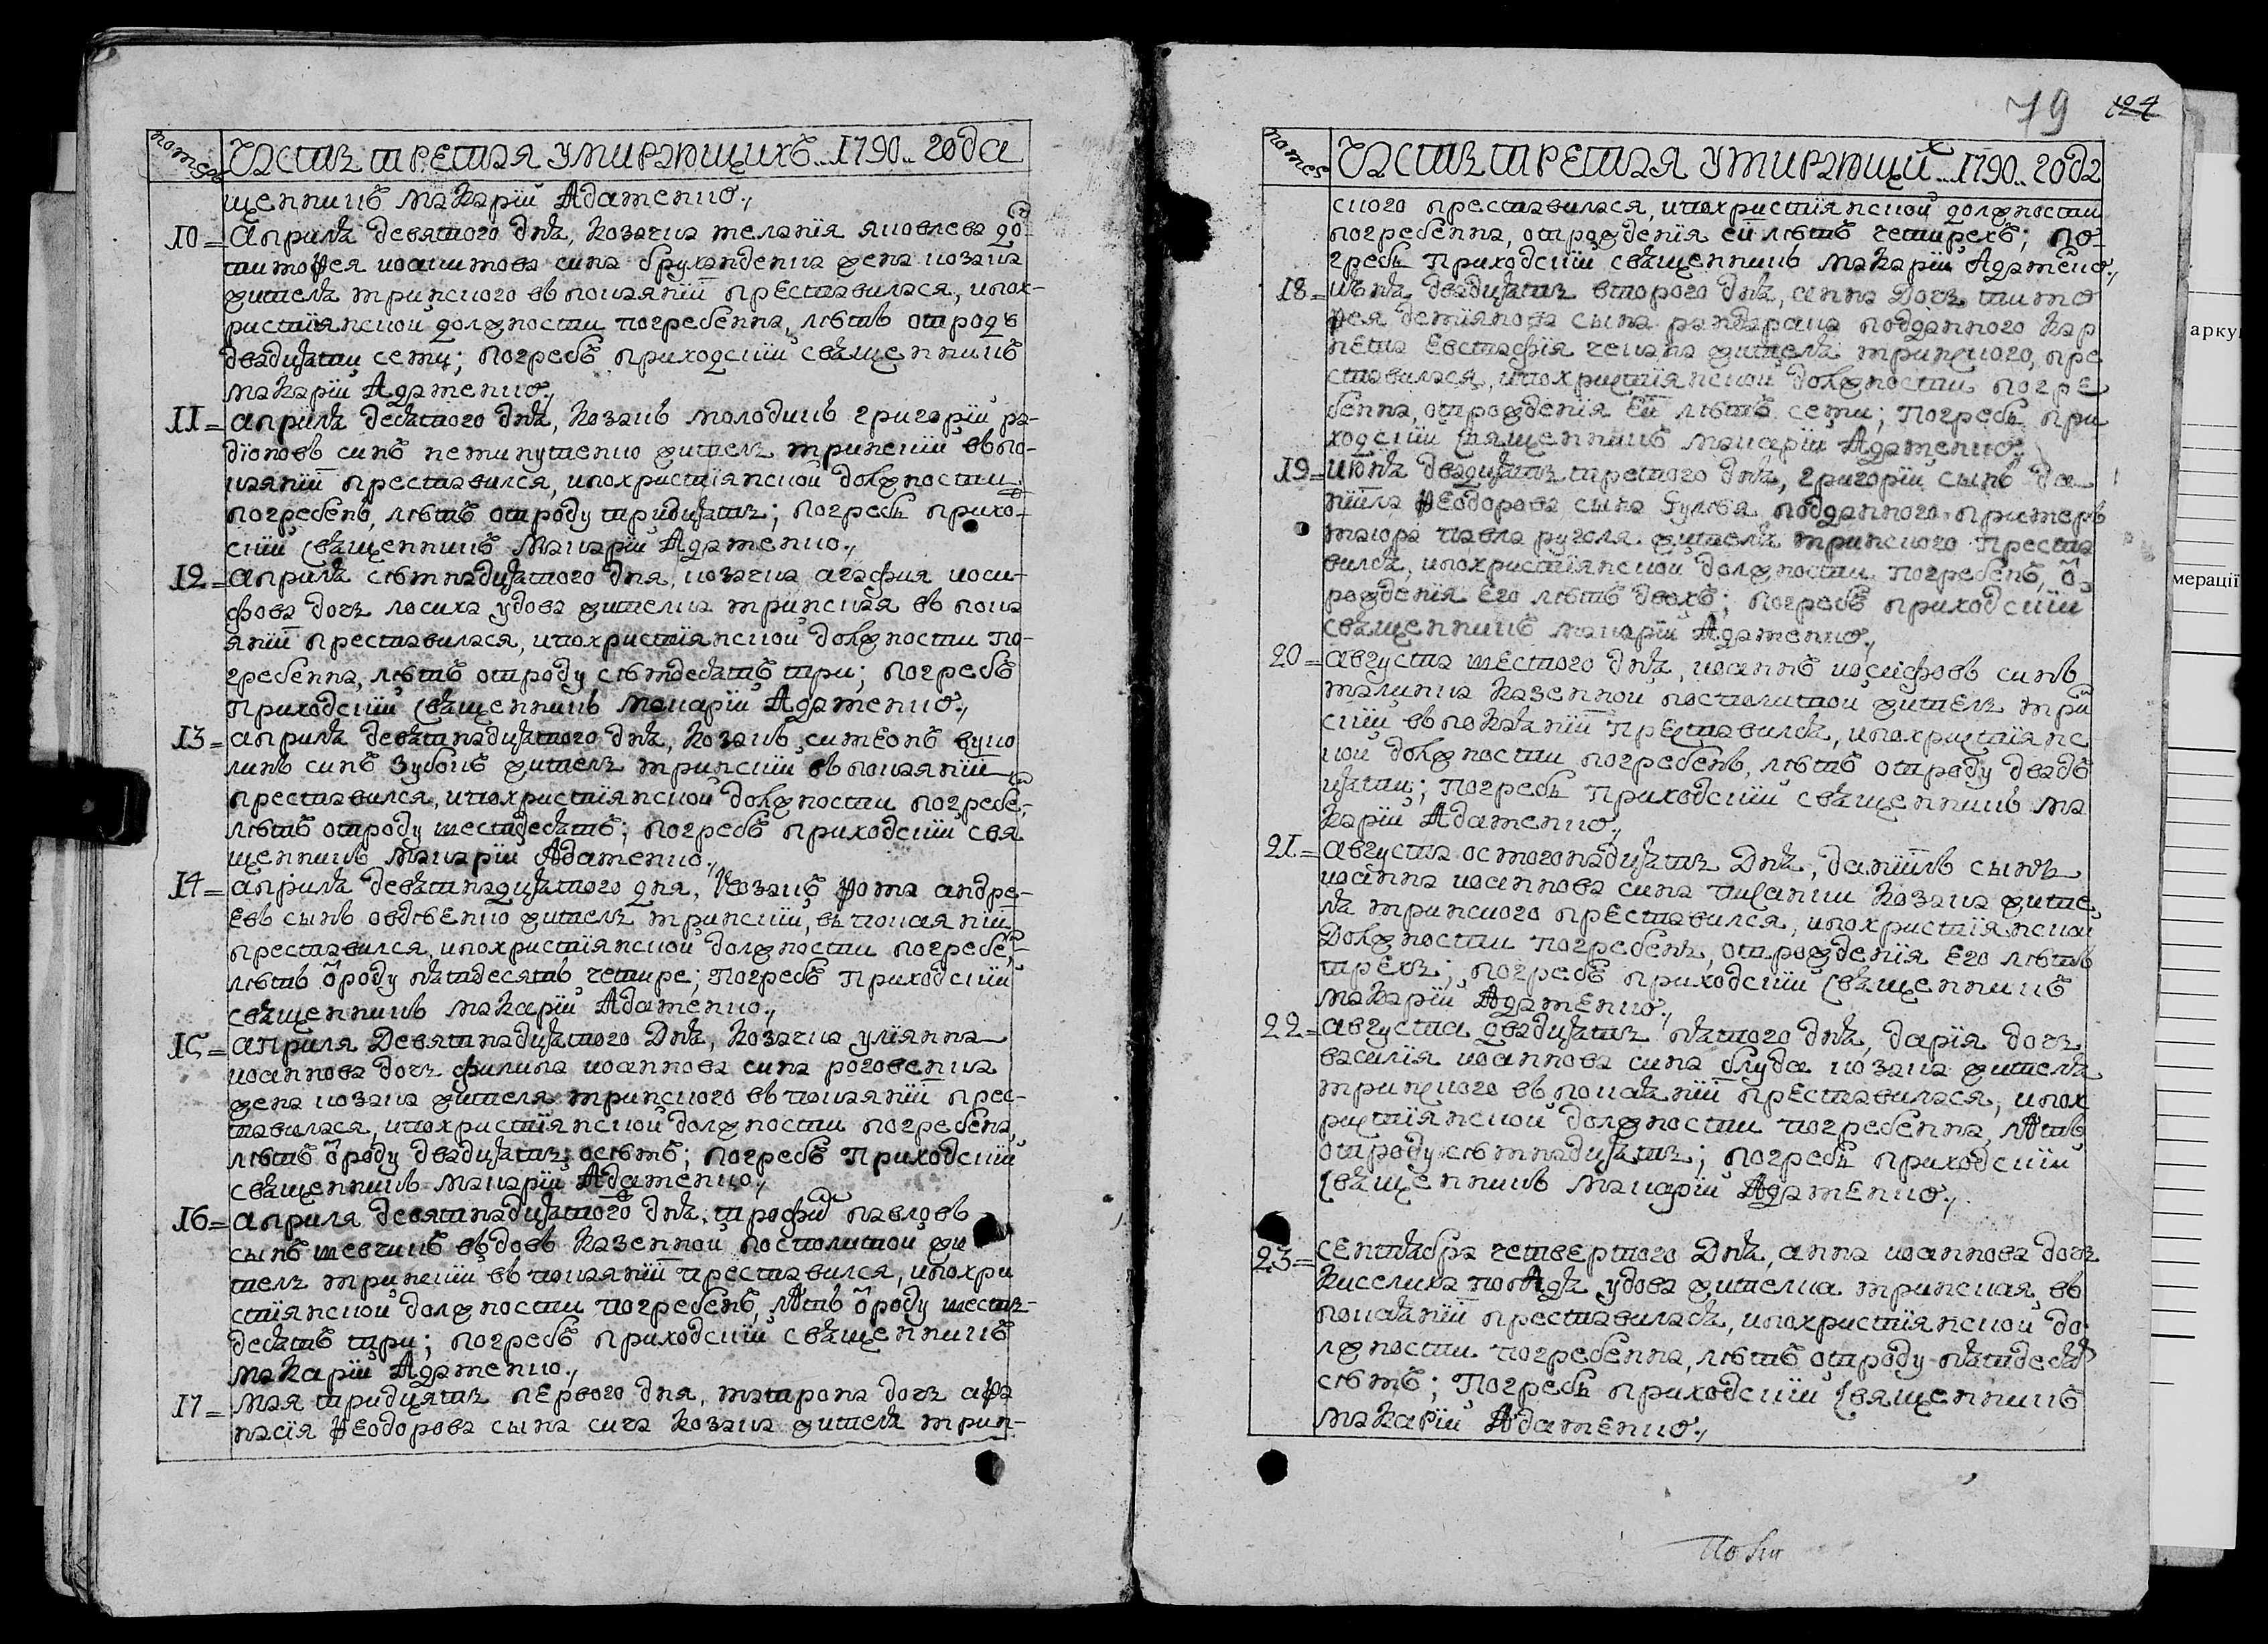 номеръ
Часть третая умирающихъ..1790..года
щенникъ макарїй Адаменко.,
10= Априля девятого дня, козачка меланїя яковлева до
тимофея иоакимова сина бруханденка жена козака
жителя мринского въ покаянїй преставилася, ипох-
ристїянской должности погребенна, лѣтъ отродъ
двадцяти семи; погребъ приходскїй священникъ
макарїй Адаменко.,
11= априля десятого дня, козакъ молодикъ григорїй ра-
дїоновъ синъ нетинутенко житель мринскїй въ по-
каянїй преставился, ипохристїянской должности
погребенъ, лѣтъ отроду тридцять; погребъ прихо-
скїй священникъ макарїй Адаменко.,
12= априля сѣмнадцятого дня, козачка агафия иоси-
фова дочь лосиха удова жителка мринская въ пока
янїй преставилася, ипохристїянской должности по-
гребенна, лѣтъ отроду сѣмдесятъ три; погребъ
приходскїй священникъ макарїй Адаменко.,
13= априля девятнадцятого дня, козакъ симеонъ вуко
ликъ синъ зубокъ житель мринскїй въ покаянїй
преставился, ипохристїянской должности погребе,
лѣтъ отроду шестдесятъ; погребъ приходскїй свя
щенникъ макарїй Адаменко.,
14= априля девятнадцятого дня, козакъ фома андре-
евъ сынъ овдѣенко житель мринскїй, въ покаянїй
преставился, ипохристїянской должности погребе,
лѣтъ ѿроду пятдесятъ четире; погребъ приходскїй
священникъ макарїй Адаменко.,
15= априля девятнадцятого дня, козачка улїянна
иоаннова дочь филипа иоаннова сина роговенка
жена козака жителя мринского въ покаянїй прес-
тавилася, ипохристїянской должности погребена,
лѣтъ ѿроду двадцять осѣмъ; погребъ приходскїй
священникъ макарїй Адаменко.,
16= априля девятнадцятого дня, трофим павловъ
сынъ шевчикъ вдовъ казенной посполитой жи
тель мринскїй въ покаянїй преставился, ипохри
стїянской должности погребенъ, лѣтъ ѿроду шесть-
десятъ три; погребъ приходскїй священникъ
макарїй Адаменко.,
17= мая тридцять первого дня, матрона дочь афа
насїя феодорова сына сича козака жителя мрин-
79 124
номеръ
Часть третая умирающих...1790..года
ского преставилася, ипохристїянской должности
погребенна, отрожденїя ей лѣтъ четирехъ; по-
гребъ приходскїй священникъ макарїй Адаменко.,
18= июня двадцять второго дня, анна дочь тимо
фея демїянова сына подданного кар
пека евстафїя чекана жителя мринского, пре
ставилася, ипохристїянской должности погре
бенна, отрожденїя ей лѣтъ семи; погребъ при
ходскїй священникъ макарїй Адаменко.,
19= июня двадцять третого дня, григорїй сынъ да
нїила феодорова сына гулѣва подданного примеръ
маюра павла ругеля жителя мринского преста
вился, ипохристїянской должности погребенъ, ѿ
рожденїя его лѣтъ двохъ; погребъ приходскїй
священникъ макарїй Адаменко.,
20= августа шестого дня, иоаннъ иосифовъ синъ
малинка казенной посполитой житель мрин
скїй въ покаянїй преставился, ипохристїянс
кой должности погребенъ, лѣтъ отроду двадъ
цяти; погребъ приходскїй священникъ ма
карїй Адаменко.,
21= августа осмогонадцять дня, данїилъ сынъ
иоанна иоаннова сина козака жите
ля мринского преставился, ипохристїянской
должности погребенъ, отрожденїя его лѣтъ
трехъ; погребъ приходскїй священникъ
макарїй Адаменко.,
22= августа двадцять пятого дня, дарїя дочь
василїя иоаннова сина блуда козака жителя
мринского въ покаянїй преставилася, ипох
ристїянской должности погребенна, лѣтъ
отроду сѣмнадцять; погребъ приходскїй
священникъ макарїй Адаменко.,
23= септября четвертого дня, анна иоаннова дочь
киселиха удова жителка мринская, въ
покаянїй преставилася, ипохристїянской до
лжности погребенна, лѣтъ отроду пятдесят
сѣмъ; погребъ приходскїй священникъ
макарїй Адаменко.,